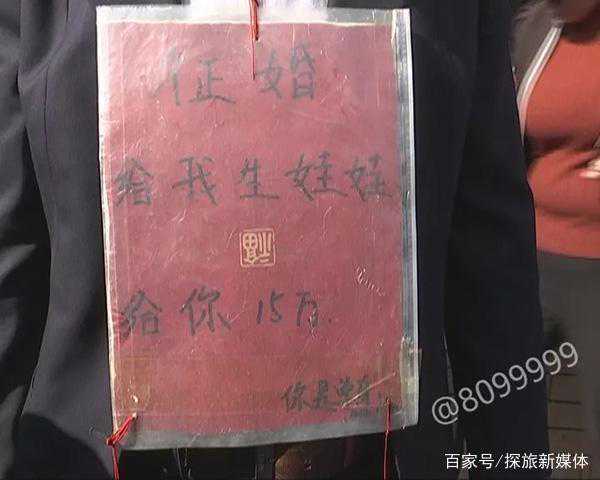 征婚
给我生娃娃
福
给你15万.
你是单身
@8099999
百家号/探旅新媒体